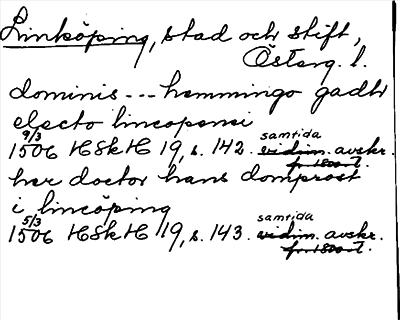 Linköping, stad och stift,
Österg. l.
dominis --- hemmingo gadh
electo lincopensi
9/3
1506 HSkH 19, s. 142. samtida vidim. avskr.
fr. 1800-t.
her doctor hans domprost
i lincöping
5/3
1506 HSkH 19, s. 143. samtida vidim. avskr.
fr. 1800-t.